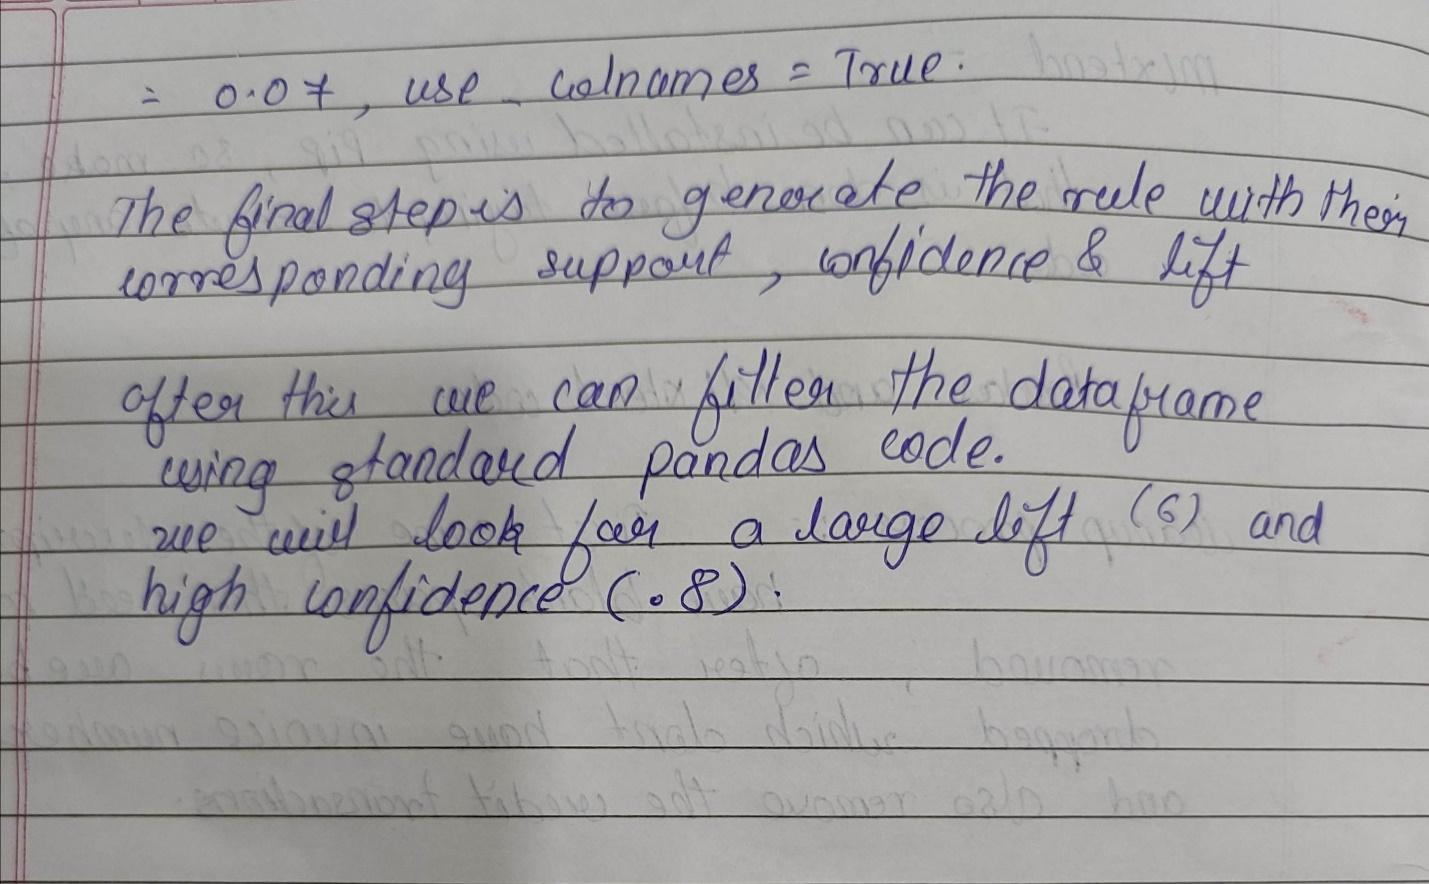 = 0.07, use_colnames = True.
The final step is to generate the rule with their
corresponding support, confidence & lift
after this we can filter the dataframe
using standard pandas code.
we will look for a large lift (6) and
high confidence (.8).